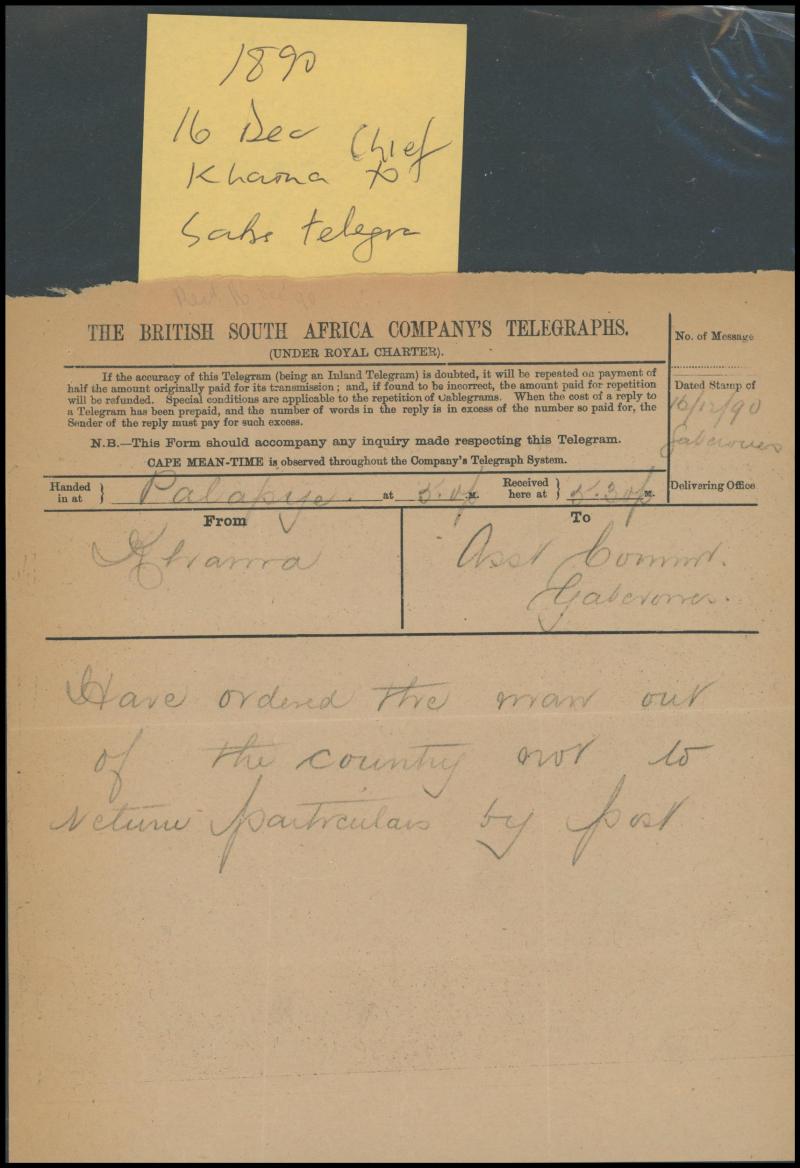 1890
16 Dec Chief
Khama to
Gabs telegram
Recd 16 Dec 90
THE BRITISH SOUTH AFRICA COMPANY'S TELEGRAPHS.
(UNDER ROYAL CHARTER).
If the accuracy of this Telegram (being an Inland Telegram) is doubted, it will be repeated on payment of
half the amount originally paid for its transmission; and, if found to be incorrect, the amount paid for repetition
will be refunded. Special conditions are applicable to the repetition of Cablegrams. When the cost of a reply to
a Telegram has been prepaid, and the number of words in the reply is in excess of the number so paid for, the
Sender of the reply must pay for such excess.
N.B.—This Form should accompany any inquiry made respecting this Telegram.
CAPE MEAN-TIME is observed throughout the Company's Telegraph System.
No. of Message
Dated Stamp of
16/12/90
Gaberones
Delivering Office
Handed in at } Palapye. at 5.0 p M. Received here at } 5.30 p M.
From
Khama
To
Asst Commr.
Gaberones.
Have ordered the man out
of the country not to
return particulars by post